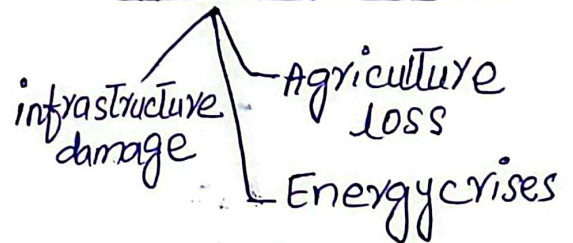 infrastructure
damage
Agriculture
loss
Energy crises